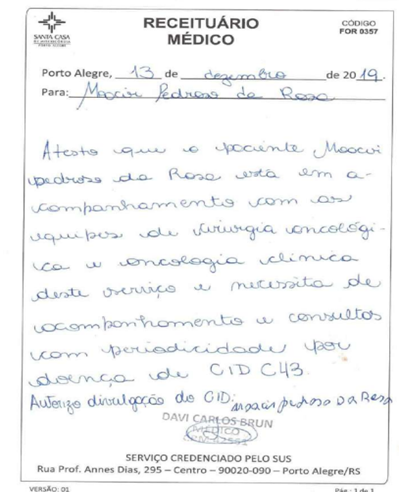 SANTA CASA
RECEITUÁRIO
MÉDICO
CÓDIGO
FOR 0357
Porto Alegre, 13 de dezembro de 2019.
Para: Moacir Pedroso da Rosa
Atesto que o paciente Moacir
pedroso da Rosa está em a-
companhamento com as
equipes de cirurgia oncológi-
ca e oncologia clínica
deste serviço e necessita de
acompanhamento e consultas
com periodicidade por
doença de CID C43.
Autorizo divulgação do CID. moacir pedroso Da Rosa
DAVI CARLOS BRUN
MÉDICO
SERVIÇO CREDENCIADO PELO SUS
Rua Prof. Annes Dias, 295 – Centro – 90020-090 – Porto Alegre/RS
VERSÃO: 01
Pág.: 1 de 1